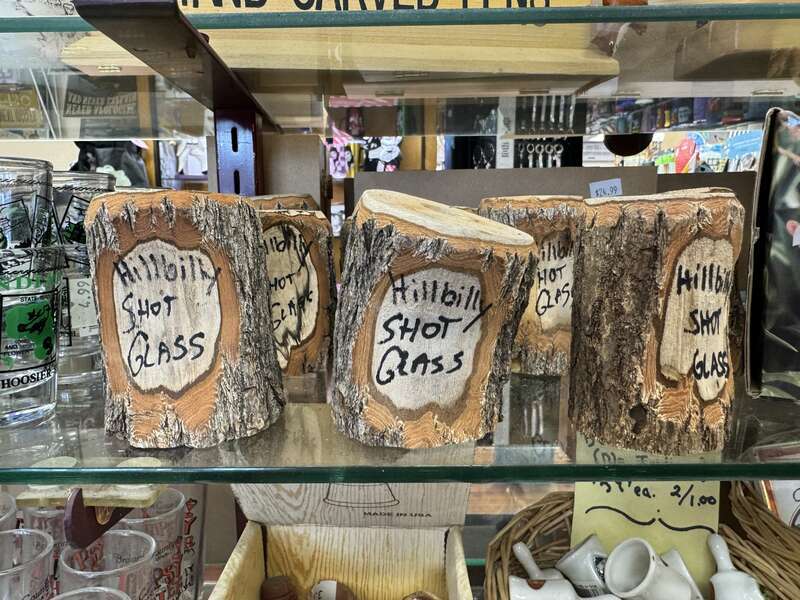 HAND CARVED PENS
$24.99
Hillbilly
SHOT
GLASS
Hillbilly
SHOT
GLASS
Hillbilly
SHOT
GLASS
SHOT
GLASS
Hillbilly
SHOT
GLASS
4.99
STATE
HOOSIER
MADE IN USA
ea. 2/1.00